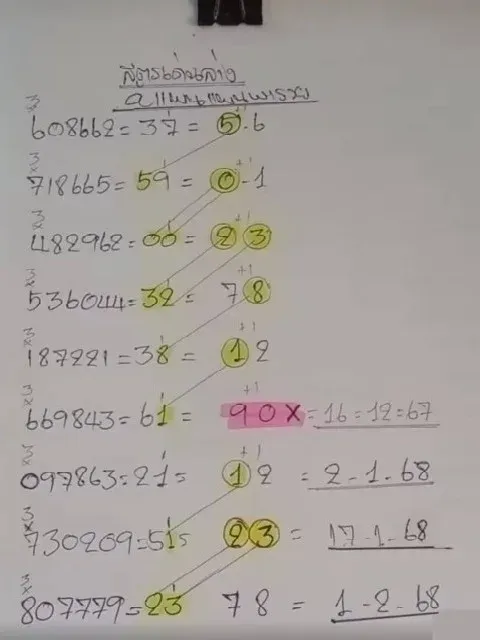 สูตรเด่นล่าง
3
× 608662 = 37 = 5.6
3
× 718665 = 59 = 0-1 +1
3
× 482962 = 00 = 23 +1
3
× 536044 = 32 = 78 +1
3
× 187221 = 38 = 12 +1
3
× 669843 = 61 = 90X = 16=12=67 +1
3
× 097863 = 21 = 12 = 2-1-68 +1
3
× 730209 = 51 = 23 = 17-1-68
3
× 807779 = 23 78 = 1-2-68